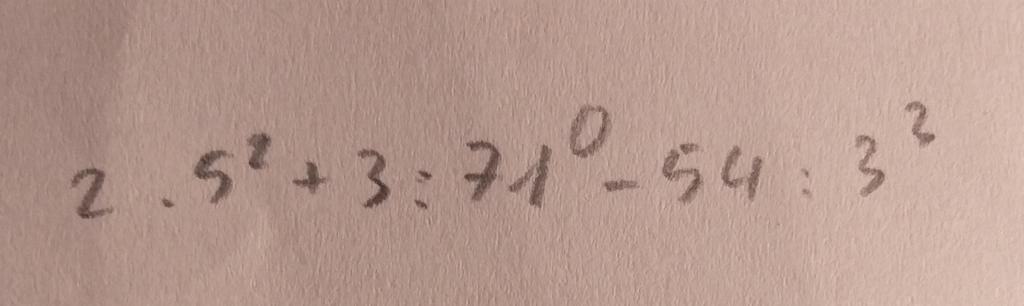 2 . 5² + 3 : 71⁰ - 54 : 3²